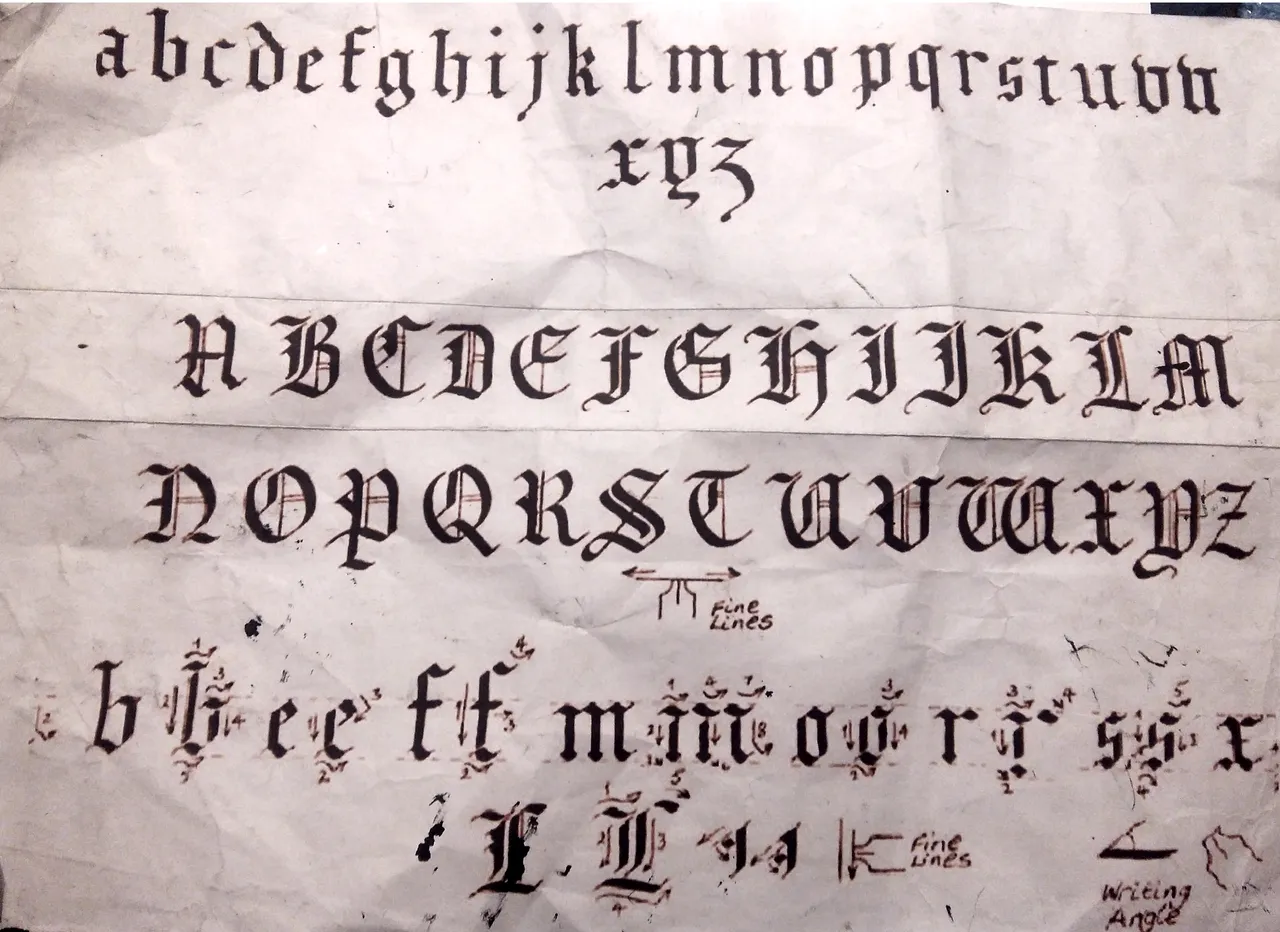 a b c d e f g h i j k l m n o p q r s t u v w
x y z
A B C D E F G H I J K L M
N O P Q R S T U V W X Y Z
Fine
Lines
b b e e f f m m o o r r s s x
L L
Fine
Lines
Writing
Angle